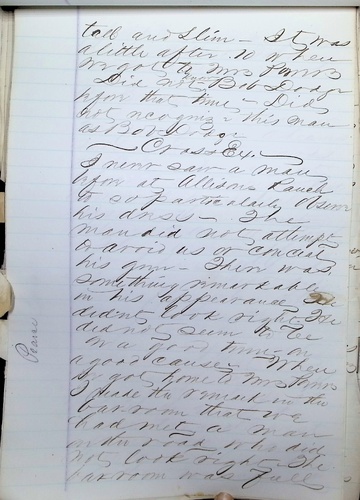 tall and Slim – It was
a little after 10 when
we got to Mrs Parrs
Did not see Bob Dodge
upon that time – Did
not recognize this man
as Bob Dodge
Cross Ex.
I never saw a man
upon at Allisons Ranch
to so particularly observe
his dress – The
man did not attempt
to avoid us or conceal
his gun – There was
something remarkable
in his appearance He
dident look right He
did not seem to be
on a good time, on
a good cause – When
I got home to Mrs Parrs
I made the remark in the
barroom that we
had met a man
on the road who did
not look right – The
barroom was full
Pearse